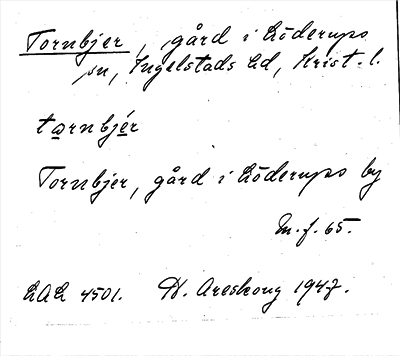 Tornbjer, gård i Löderups
sn, Ingelstads hd, Krist. l.
tɷrnbjér
Tornbjer, gård i Löderups by
M. f. 65.
LAL 4501. H. Areskoug 1947.